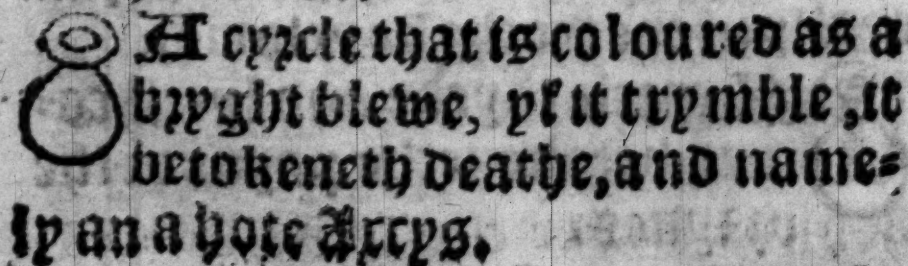 A cyrcle that is coloured as a
bryght blewe, yf it trymble, it
betokeneth deathe, and name=
ly an a hote Axcys.